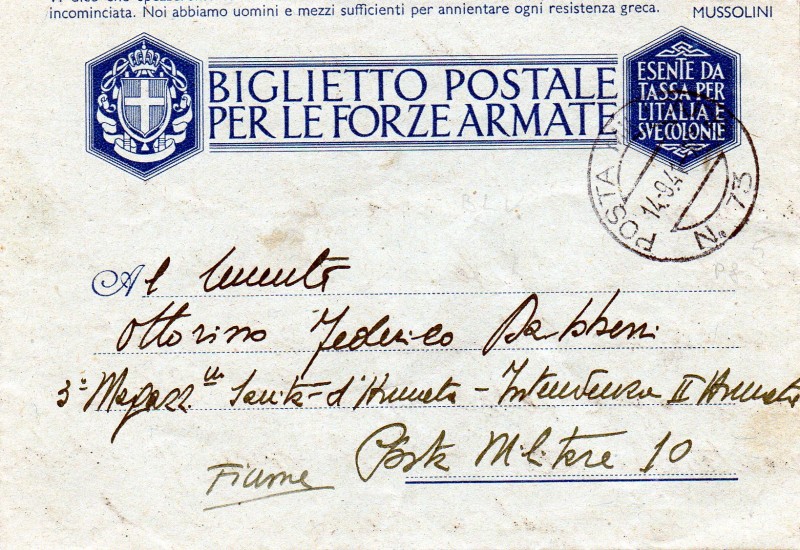 incominciata. Noi abbiamo uomini e mezzi sufficienti per annientare ogni resistenza greca.
MUSSOLINI
BIGLIETTO POSTALE
PER LE FORZE ARMATE
ESENTE DA
TASSA PER
L'ITALIA E
SVE COLONIE
POSTA
14.9.41
N. 73
Al Tenente
Ottorino Federico
3º Magazz. Sanità d'Armata - Intendenza II Armata
Posta Militare 10
Fiume